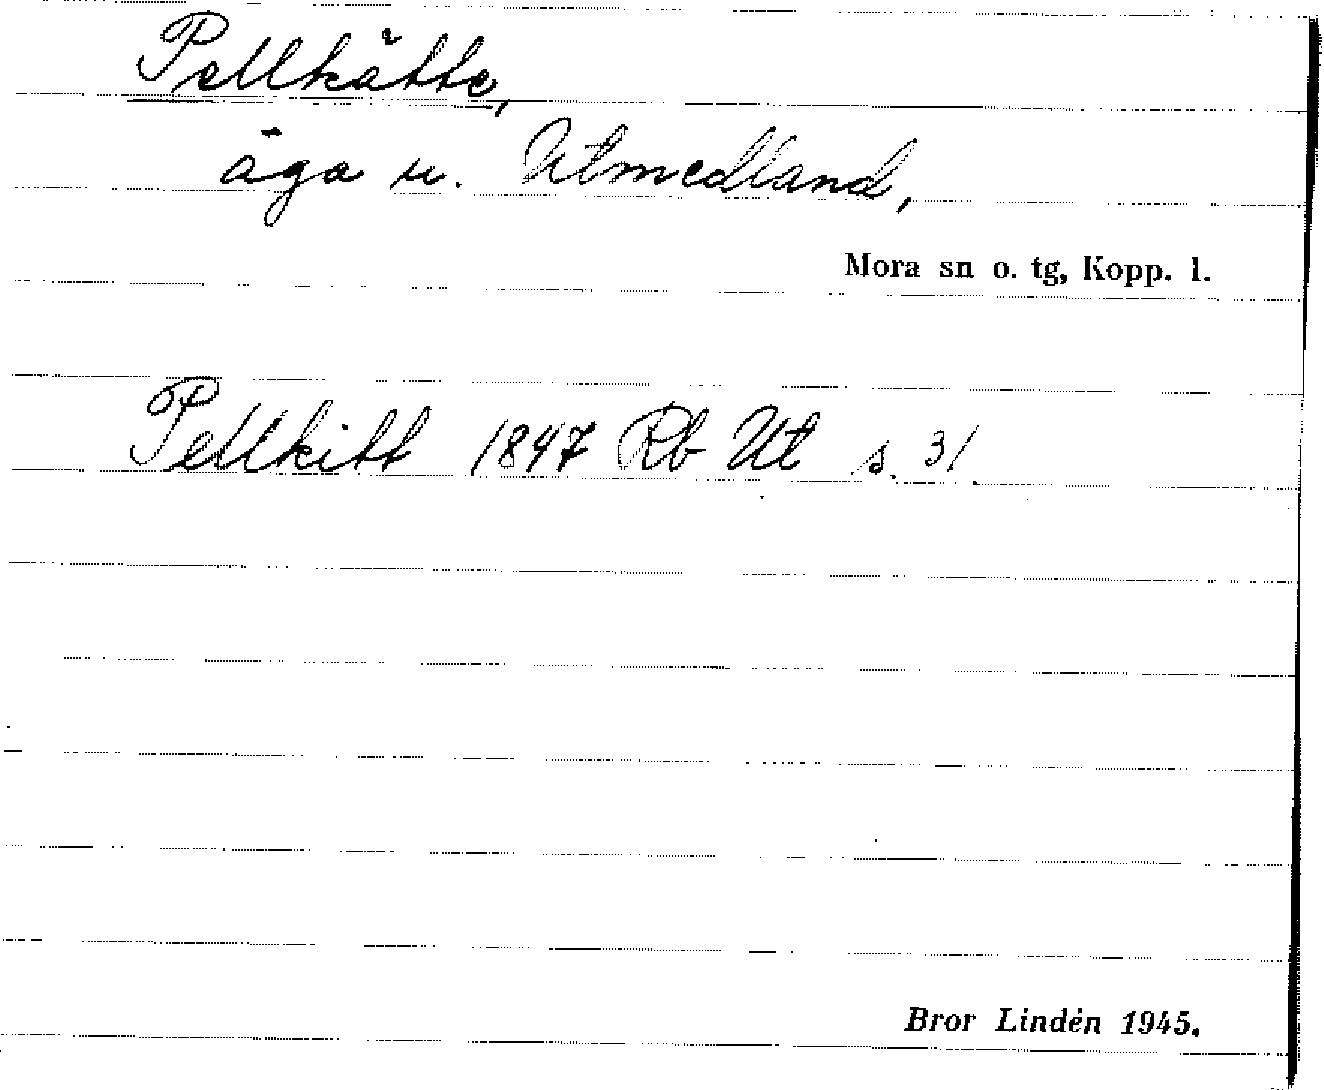 Pellkätte,
äga u. Utmedland,
Mora sn o. tg, Kopp. l.
Pellkitt 1847 Rb Ut s. 31.
Bror Lindén 1945.